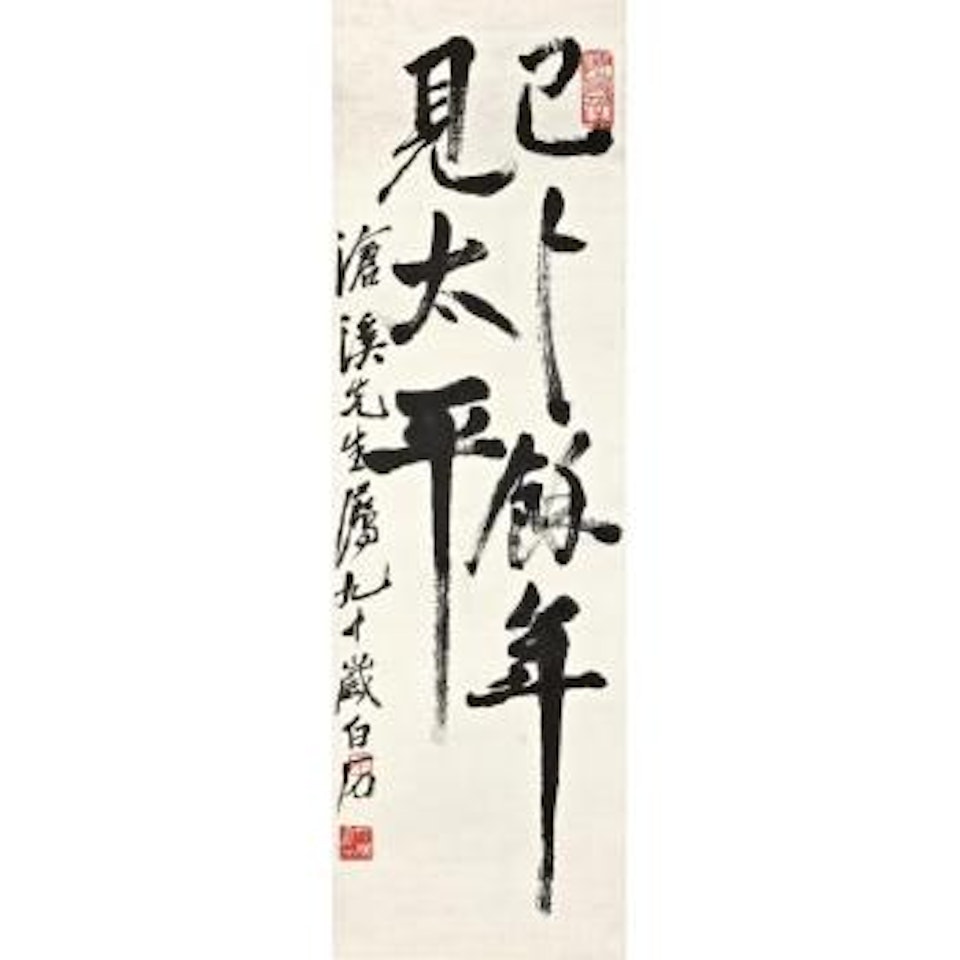 已卜餘年
見太平
滄溪先生屬九十歲白石